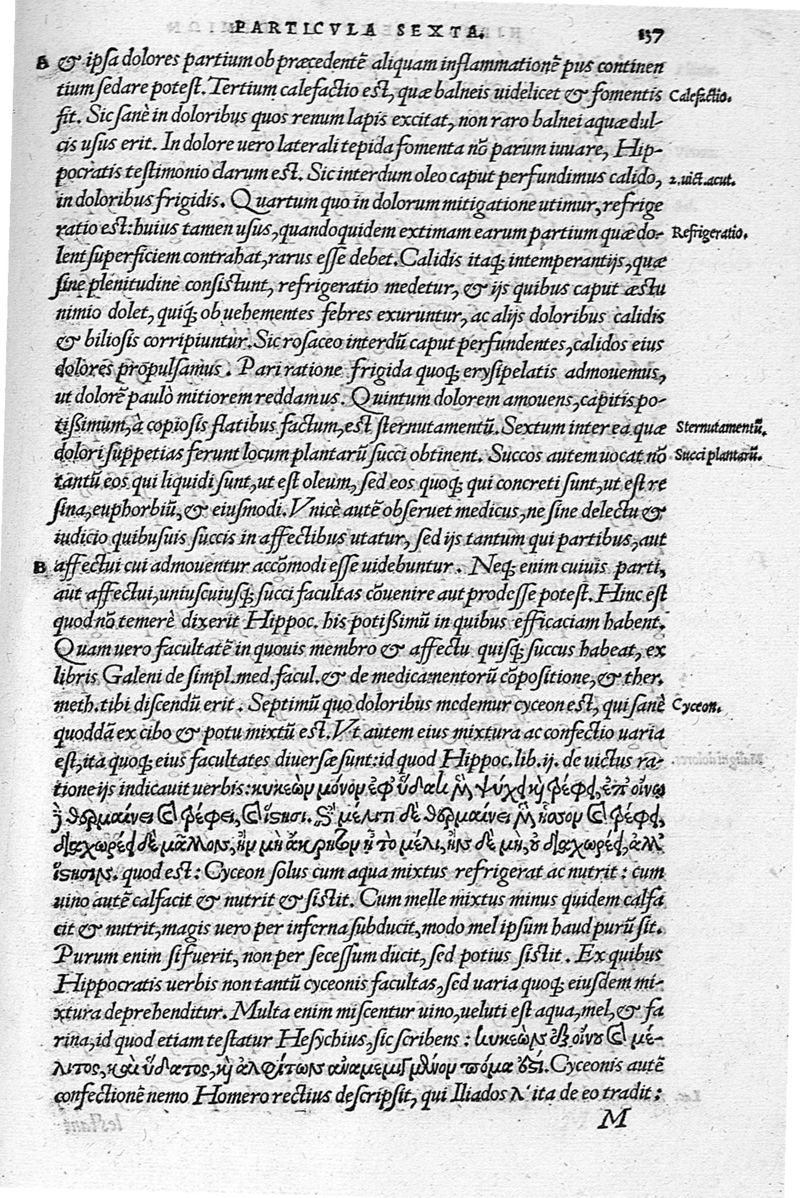 PARTICVLA SEXTA. 137
B & ipsa dolores partium ob præcedentē aliquam inflammationē pus continen
tium sedare potest. Tertium calefactio est, quæ balneis uidelicet & fomentis Calefactio.
fit. Sic sanè in doloribus quos renum lapis excitat, non raro balnei aquæ dul-
cis usus erit. In dolore uero laterali tepida fomenta nō parum iuuare, Hip-
pocratis testimonio clarum est. Sic interdum oleo caput perfundimus calido, 2. uict. acut.
in doloribus frigidis. Quartum quo in dolorum mitigatione utimur, refrige
ratio est: huius tamen usus, quandoquidem extimam earum partium quæ do- Refrigeratio.
lent superficiem contrahat, rarus esse debet. Calidis itaq; intemperantijs, quæ
sine plenitudine consistunt, refrigeratio medetur, & ijs quibus caput æstu
nimio dolet, quiq́; ob uehementes febres exuruntur, ac alijs doloribus calidis
& biliosis corripiuntur. Sic rosaceo interdū caput perfundentes, calidos eius
dolores propulsamus. Pari ratione frigida quoq; erysipelatis admouemus,
ut dolorē paulò mitiorem reddamus. Quintum dolorem amouens, capitis po-
tißimum, à copiosis flatibus factum, est sternutamentū. Sextum inter ea quæ Sternutamentū.
dolori suppetias ferunt locum plantarū succi obtinent. Succos autem uocat nō Succi plantarū.
tantū eos qui liquidi sunt, ut est oleum, sed eos quoq; qui concreti sunt, ut est re
sina, euphorbiū, & eiusmodi. Vnicè autē obseruet medicus, ne sine delectu &
iudicio quibusuis succis in affectibus utatur, sed ijs tantum qui partibus, aut
B affectui cui admouentur accōmodi esse uidebuntur. Neq; enim cuiuis parti,
aut affectui, uniuscuiusq; succi facultas cōuenire aut prodesse potest. Hinc est
quod nō temerè dixerit Hippoc. his potißimū in quibus efficaciam habent.
Quam uero facultatē in quouis membro & affectu quisq; succus habeat, ex
libris Galeni de simpl. med. facul. & de medicamentorū cōpositione, & ther.
meth. tibi discendū erit. Septimū quo doloribus medemur cyceon est, qui sanè Cyceon.
quoddā ex cibo & potu mixtū est. Vt autem eius mixtura ac confectio uaria
est, ita quoq; eius facultates diuersæ sunt: id quod Hippoc. lib. ij. de uictus ra-
tione ijs indicauit uerbis: κυκεὼν μόνον ἐφ' ὕδατι μὲν ψύχει καὶ τρέφει, ἐπ' οἴνου
δὲ θερμαίνει καὶ τρέφει, καὶ ἵστησι. ἐπὶ μέλιτι δὲ θερμαίνει μὲν ἧσσον καὶ τρέφει,
διαχωρέει δὲ μᾶλλον, ἢν μὴ ἄκρητον ᾖ τὸ μέλι, ἢν δὲ μὴ, οὐ διαχωρέει, ἀλλ'
ἵστησιν. quod est: Cyceon solus cum aqua mixtus refrigerat ac nutrit: cum
uino autē calfacit & nutrit & sistit. Cum melle mixtus minus quidem calfa
cit & nutrit, magis uero per inferna subducit, modo mel ipsum haud purū sit.
Purum enim si fuerit, non per secessum ducit, sed potius sistit. Ex quibus
Hippocratis uerbis non tantū cyceonis facultas, sed uaria quoq; eiusdem mi-
xtura deprehenditur. Multa enim miscentur uino, ueluti est aqua, mel, & fa
rina, id quod etiam testatur Hesychius, sic scribens: κυκεὼν ἐξ οἴνου καὶ μέ-
λιτος, καὶ ὕδατος, καὶ ἀλφίτων ἀναμεμιγμένον πόμα ἐστί. Cyceonis autē
confectionē nemo Homero rectius descripsit, qui Iliados λ' ita de eo tradit:
M